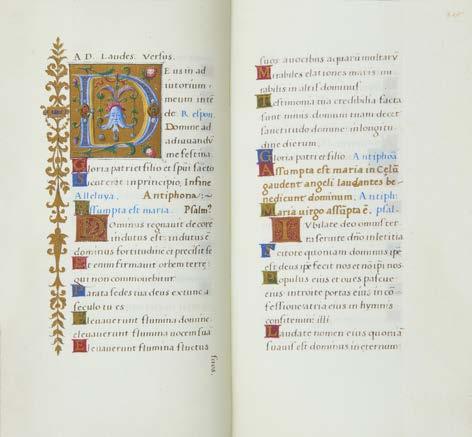 AD Laudes Versus.
D Eus in ad
iutorium
meum inte
de. Respon
Domine ad
adiuuandu
me festina.
Gloria patri et filio et spui sacto
Sicut erat in principio, Infine
Alleluya. Antiphona.
Assumpta est maria. Psalm9
Dominus regnauit decore
indutus est: indutus e
dominus fortitudine et precisit se
Et enim firmauit orbem terre:
qui non commouebitur.
Parata sedes tua deus ex tunc a
seculo tu es
Eleuauerunt flumina domine:
eleuauerunt flumina uocem sua
Eleuauerunt flumina fluctus
suos.
suos a uocibus aquarum multaru
Mirabiles elationes maris: mi
rabilis in altis dominus
Testimonia tua credibilia facta
sunt nimis: domum tuam decet
sanctitudo domine: in longitu
dine dierum.
Gloria patri et filio. Antiphoa
Assumpta est maria in Celu
gaudent angeli laudantes be
nedicunt dominum. Antiphona
Maria uirgo assupta e. psal
Iubilate deo omnis ter
ra: seruite dno in letitia
Scitote quoniam dominus ipe
est deus: ipe fecit nos et no ipi nos
Populus eius et oues pascue
eius: introite portas eius in co
fessione atria eius in hymnis
confitemini illi
Laudate nomen eius quonia
suauis est dominus in eternum: